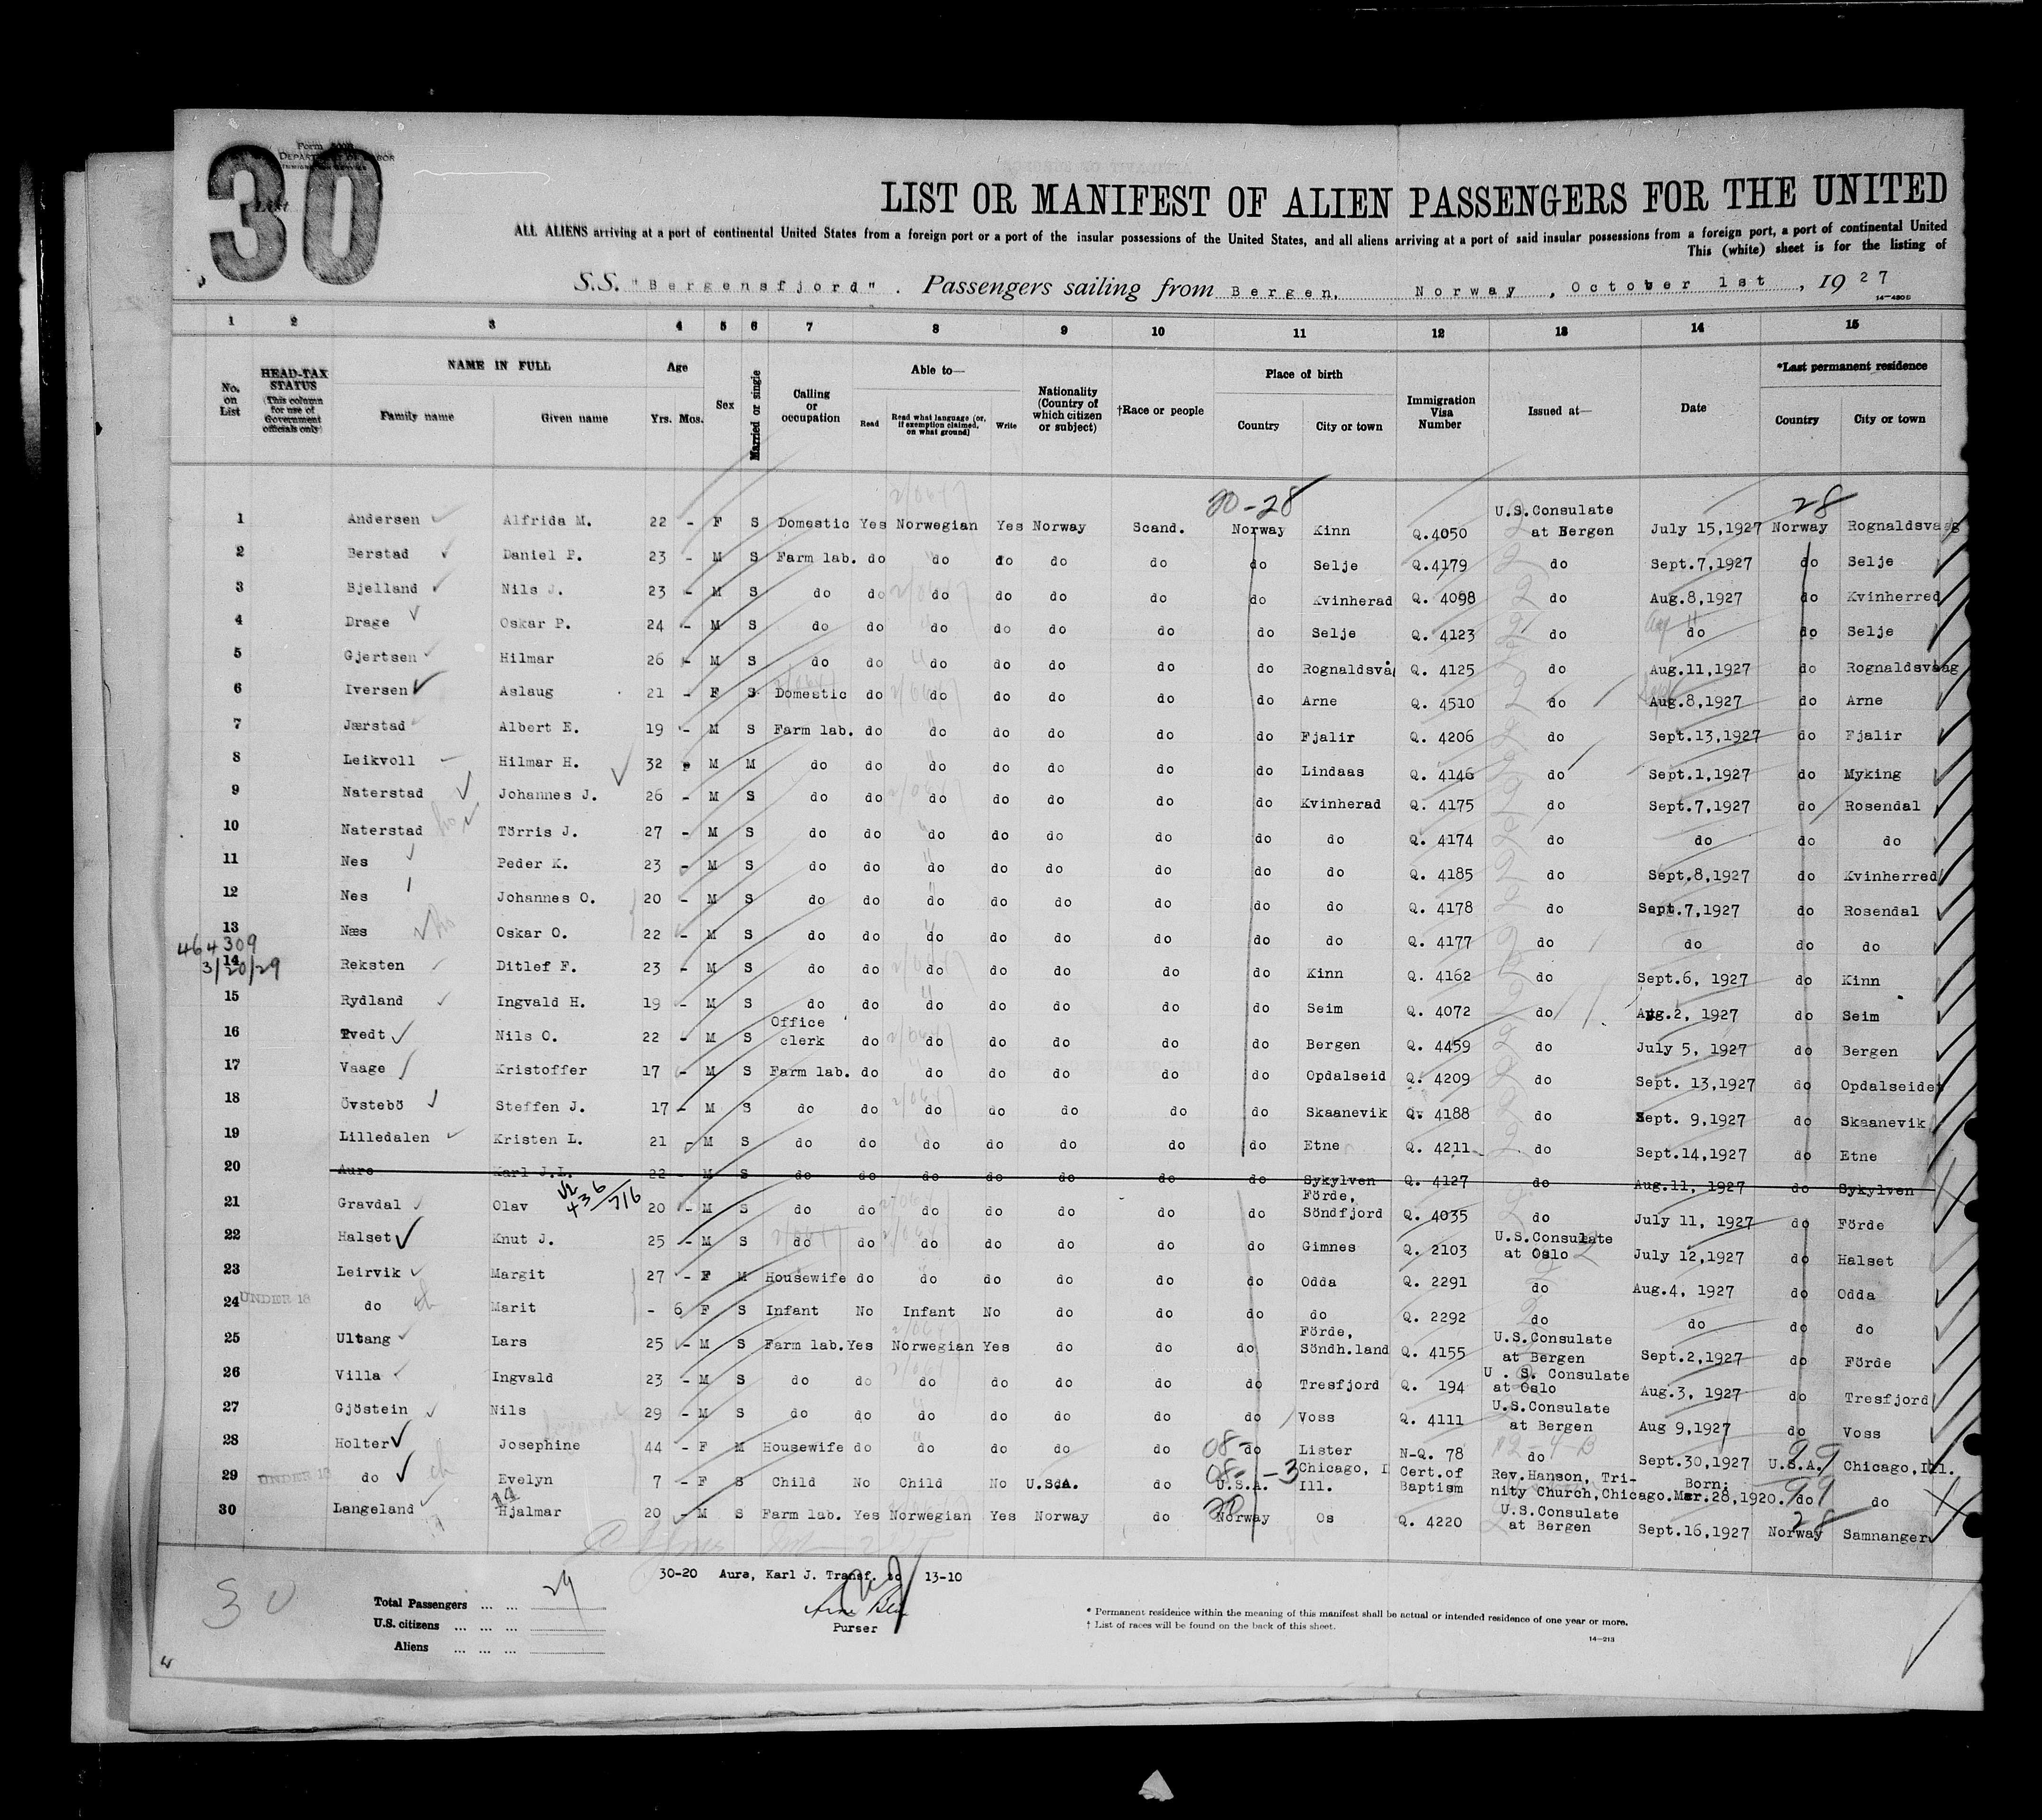 30
Form 500B
DEPARTMENT OF LABOR
IMMIGRATION SERVICE
List
LIST OR MANIFEST OF ALIEN PASSENGERS FOR THE UNITED
ALL ALIENS arriving at a port of continental United States from a foreign port or a port of the insular possessions of the United States, and all aliens arriving at a port of said insular possessions from a foreign port, a port of continental United
This (white) sheet is for the listing of
S.S. "Bergensfjord". Passengers sailing from Bergen, Norway, October 1st, 1927
1 2 3 4 5 6 7 8 9 10 11 12 13 14 15
No. on List HEAD-TAX STATUS (This column for use of Government officials only) NAME IN FULL Family name Given name Age Yrs. Mos. Sex Married or single Calling or occupation Able to— Read Read what language (or, if exemption claimed, on what ground) Write Nationality (Country of which citizen or subject) †Race or people Place of birth Country City or town Immigration Visa Number Issued at— Date *Last permanent residence Country City or town
20-28 28
1 Andersen Alfrida M. 22 - F S Domestic Yes Norwegian Yes Norway Scand. Norway Kinn Q.4050 U.S.Consulate at Bergen July 15,1927 Norway Rognaldsvaag
2 Berstad Daniel P. 23 - M S Farm lab. do do do do do do Selje Q.4179 do Sept.7,1927 do Selje
3 Bjelland Nils J. 23 - M S do do do do do do do Kvinherad Q. 4098 do Aug.8,1927 do Kvinherred
4 Drage Oskar P. 24 - M S do do do do do do do Selje Q. 4123 do do Aug 11 do Selje
5 Gjertsen Hilmar 26 - M S do do do do do do do Rognaldsvå Q. 4125 do Aug.11,1927 do Rognaldsvaag
6 Iversen Aslaug 21 - F S Domestic do do do do do do Arne Q. 4510 do Aug.8,1927 do Arne
7 Jærstad Albert E. 19 - M S Farm lab. do do do do do do Fjalir Q. 4206 do Sept.13,1927 do Fjalir
8 Leikvoll Hilmar H. 32 - M M do do do do do do do Lindaas Q. 4146 do Sept.1,1927 do Myking
9 Naterstad Johannes J. 26 - M S do do do do do do do Kvinherad Q. 4175 do Sept.7,1927 do Rosendal
10 Naterstad Törris J. 27 - M S do do do do do do do do Q. 4174 do do do do
11 Nes Peder K. 23 - M S do do do do do do do do Q. 4185 do Sept.8,1927 do Kvinherred
12 Nes Johannes O. 20 - M S do do do do do do do do Q. 4178 do Sept.7,1927 do Rosendal
13 Næs Oskar O. 22 - M S do do do do do do do do Q. 4177 do do do do
464309
3/20/29
14 Reksten Ditlef F. 23 - M S do do do do do do do Kinn Q. 4162 do Sept.6, 1927 do Kinn
15 Rydland Ingvald H. 19 - M S do do do do do do do Seim Q. 4072 do Aug.2, 1927 do Seim
16 Tvedt Nils O. 22 - M S Office clerk do do do do do do Bergen Q. 4459 do July 5, 1927 do Bergen
17 Vaage Kristoffer 17 - M S Farm lab. do do do do do do Opdalseid Q. 4209 do Sept. 13,1927 do Opdalseidet
18 Övstebö Steffen J. 17 - M S do do do do do do do Skaanevik Q. 4188 do Sept. 9,1927 do Skaanevik
19 Lilledalen Kristen L. 21 - M S do do do do do do do Etne Q. 4211 do Sept.14,1927 do Etne
20 Aure Karl J.L. 22 - M S do do do do do do do Sykylven Q. 4127 do Aug.11, 1927 do Sykylven
21 Gravdal Olav 20 - M S do do do do do do do Förde, Söndfjord Q. 4035 do July 11, 1927 do Förde
22 Halset Knut J. 25 - M S do do do do do do do Gimnes Q. 2103 U.S.Consulate at Oslo July 12,1927 do Halset
23 Leirvik Margit 27 - F M Housewife do do do do do do Odda Q. 2291 do Aug.4, 1927 do Odda
24 UNDER 18 do Marit - 6 F S Infant No Infant No do do do do Q. 2292 do do do do
25 Ultang Lars 25 - M S Farm lab. Yes Norwegian Yes do do do Förde, Söndh.land Q. 4155 U.S.Consulate at Bergen Sept.2,1927 do Förde
26 Villa Ingvald 23 - M S do do do do do do do Tresfjord Q. 194 U.S. Consulate at Oslo Aug.3, 1927 do Tresfjord
27 Gjöstein Nils 29 - M S do do do do do do do Voss Q. 4111 U.S.Consulate at Bergen Aug 9,1927 do Voss
28 Holter Josephine 44 - F M Housewife do do do do do do Lister N-Q. 78 do Sept.30,1927 U.S.A. Chicago, Ill.
29 UNDER 18 do Evelyn 7 - F S Child No Child No U.S.A. do U.S.A. Chicago, Ill. Cert.of Baptism Rev.Hanson, Trinity Church,Chicago. Born: Mar.28,1920. do do
30 Langeland Hjalmar 20 - M S Farm lab. Yes Norwegian Yes Norway do Norway Os Q. 4220 U.S.Consulate at Bergen Sept.16,1927 Norway Samnanger
30-20 Aure, Karl J. Transf. to 13-10
30
Total Passengers ... ... 29
U.S. citizens ... ... ...
Aliens ... ... ...
Purser
* Permanent residence within the meaning of this manifest shall be actual or intended residence of one year or more.
† List of races will be found on the back of this sheet.
14—213